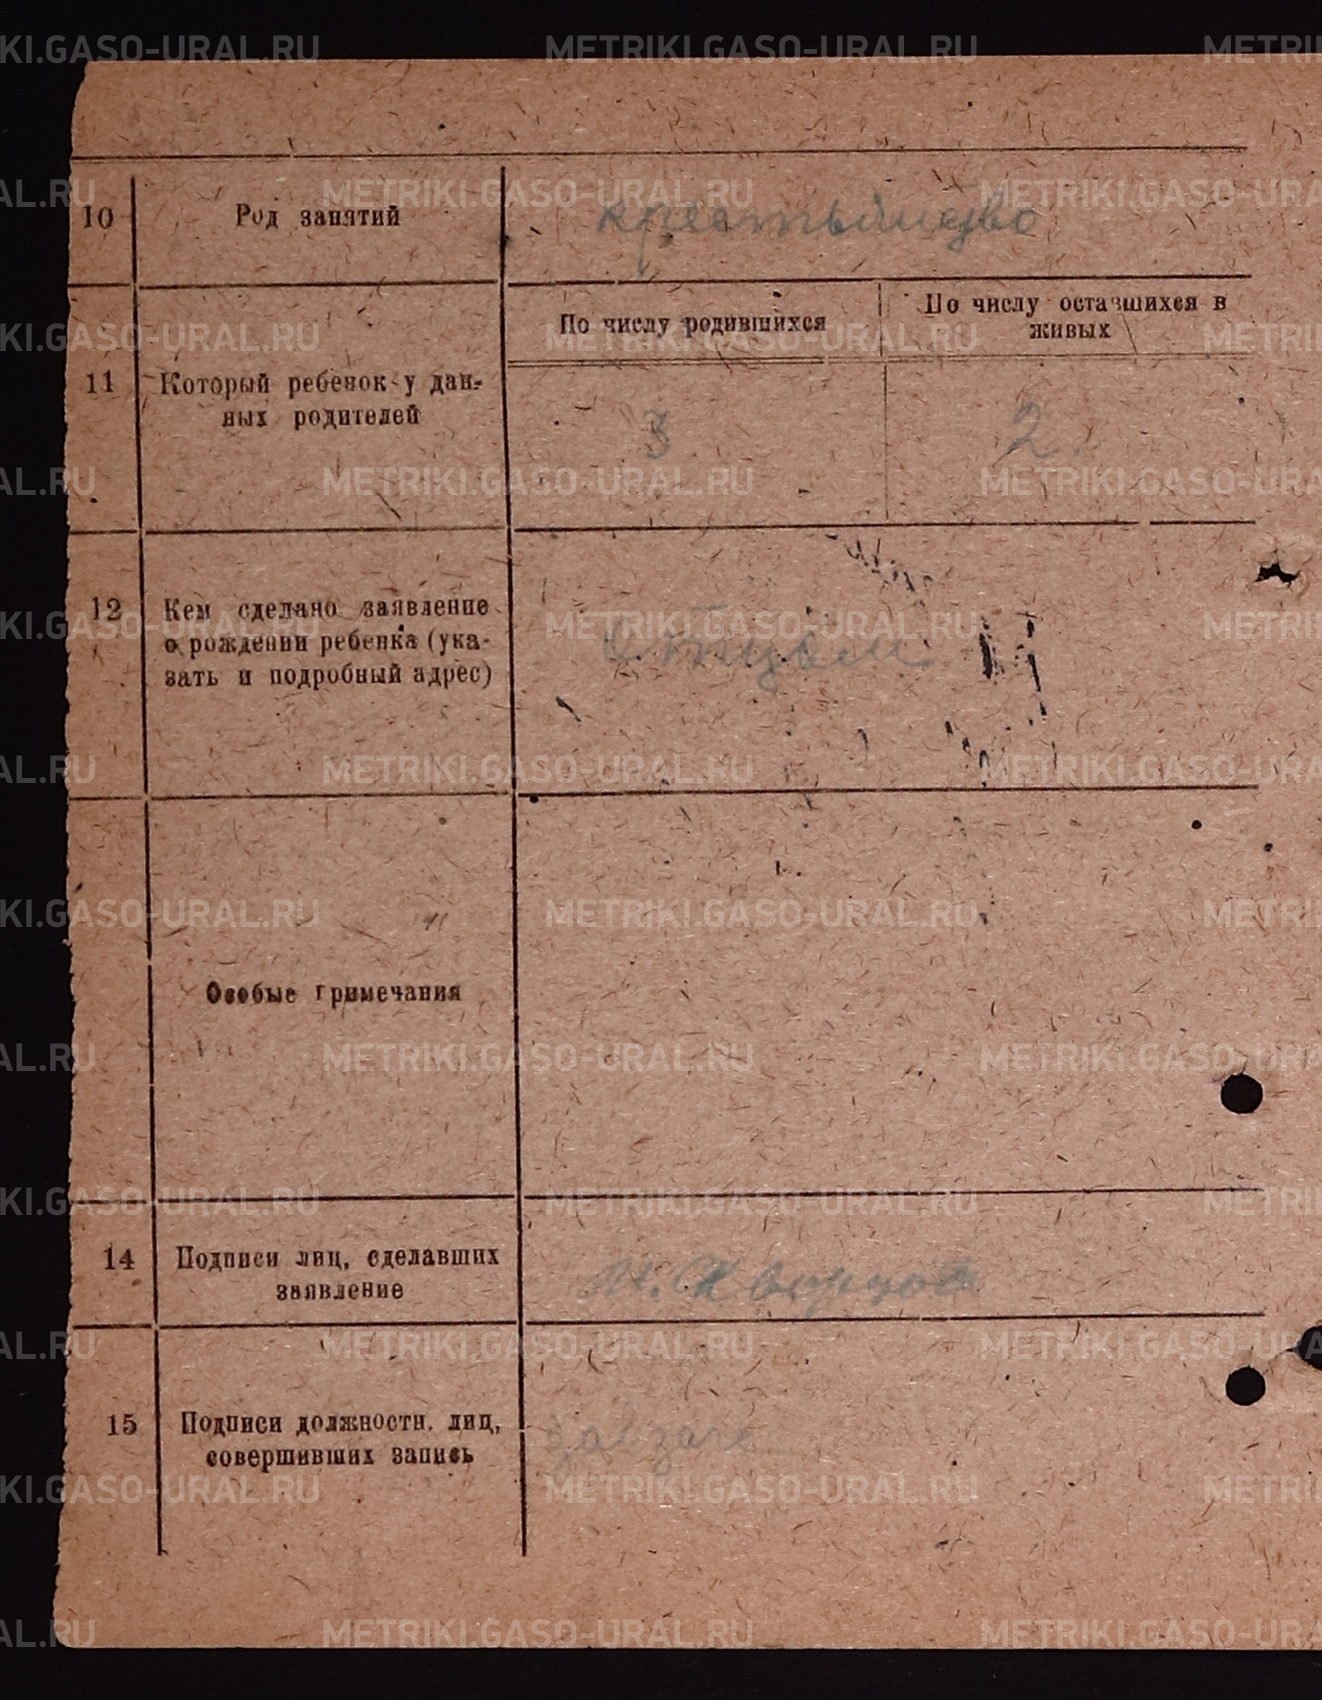 10 Род занятий крестьянство
По числу родившихся По числу оставшихся в
живых
11 Который ребенок у дан-
ных родителей 3 2.
12 Кем сделано заявление
о рождении ребенка (ука-
зать и подробный адрес) Отцом
Особые примечания
14 Подписи лиц, сделавших
заявление
15 Подписи должностн. лиц,
совершивших запись
METRIKI.GASO-URAL.RU